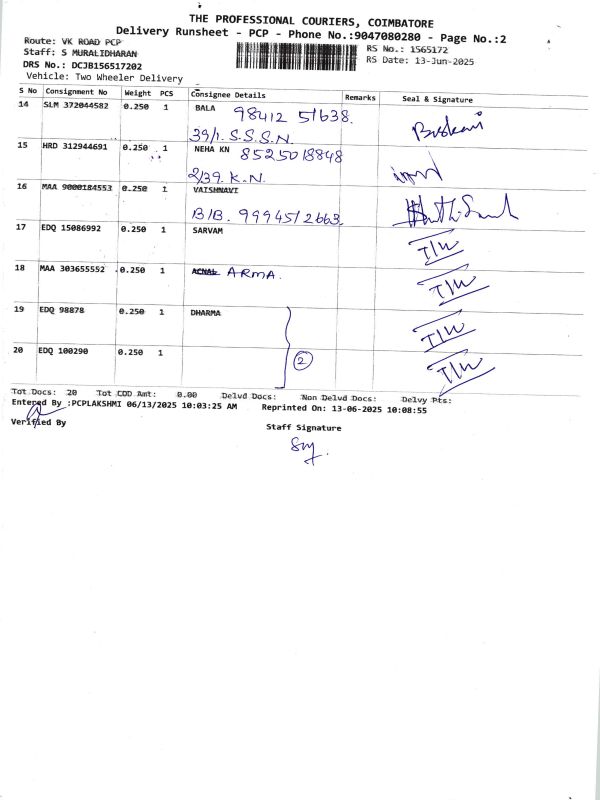 THE PROFESSIONAL COURIERS, COIMBATORE
Delivery Runsheet - PCP - Phone No.:9047080280 - Page No.:2
Route: VK ROAD PCP
RS No.: 1565172
Staff: S MURALIDHARAN
RS Date: 13-Jun-2025
DRS No.: DCJB156517202
Vehicle: Two Wheeler Delivery
S No Consignment No Weight PCS Consignee Details Remarks Seal & Signature
14 SLM 372044582 0.250 1 BALA 98412 51638.
39/1. S.S.S.N.
15 HRD 312944691 0.250 1 NEHA KN 8525018848
2/39. K.N.
16 MAA 9000184553 0.250 1 VAISHNAVI
B/B. 99945/2663.
17 EDQ 15086992 0.250 1 SARVAM
18 MAA 303655552 0.250 1 ACNAL ARMA.
19 EDQ 98878 0.250 1 DHARMA
20 EDQ 100290 0.250 1
2
Tot Docs: 20 Tot COD Amt: 0.00 Delvd Docs: Non Delvd Docs: Delvy Pts:
Entered By :PCPLAKSHMI 06/13/2025 10:03:25 AM Reprinted On: 13-06-2025 10:08:55
Verified By
Staff Signature